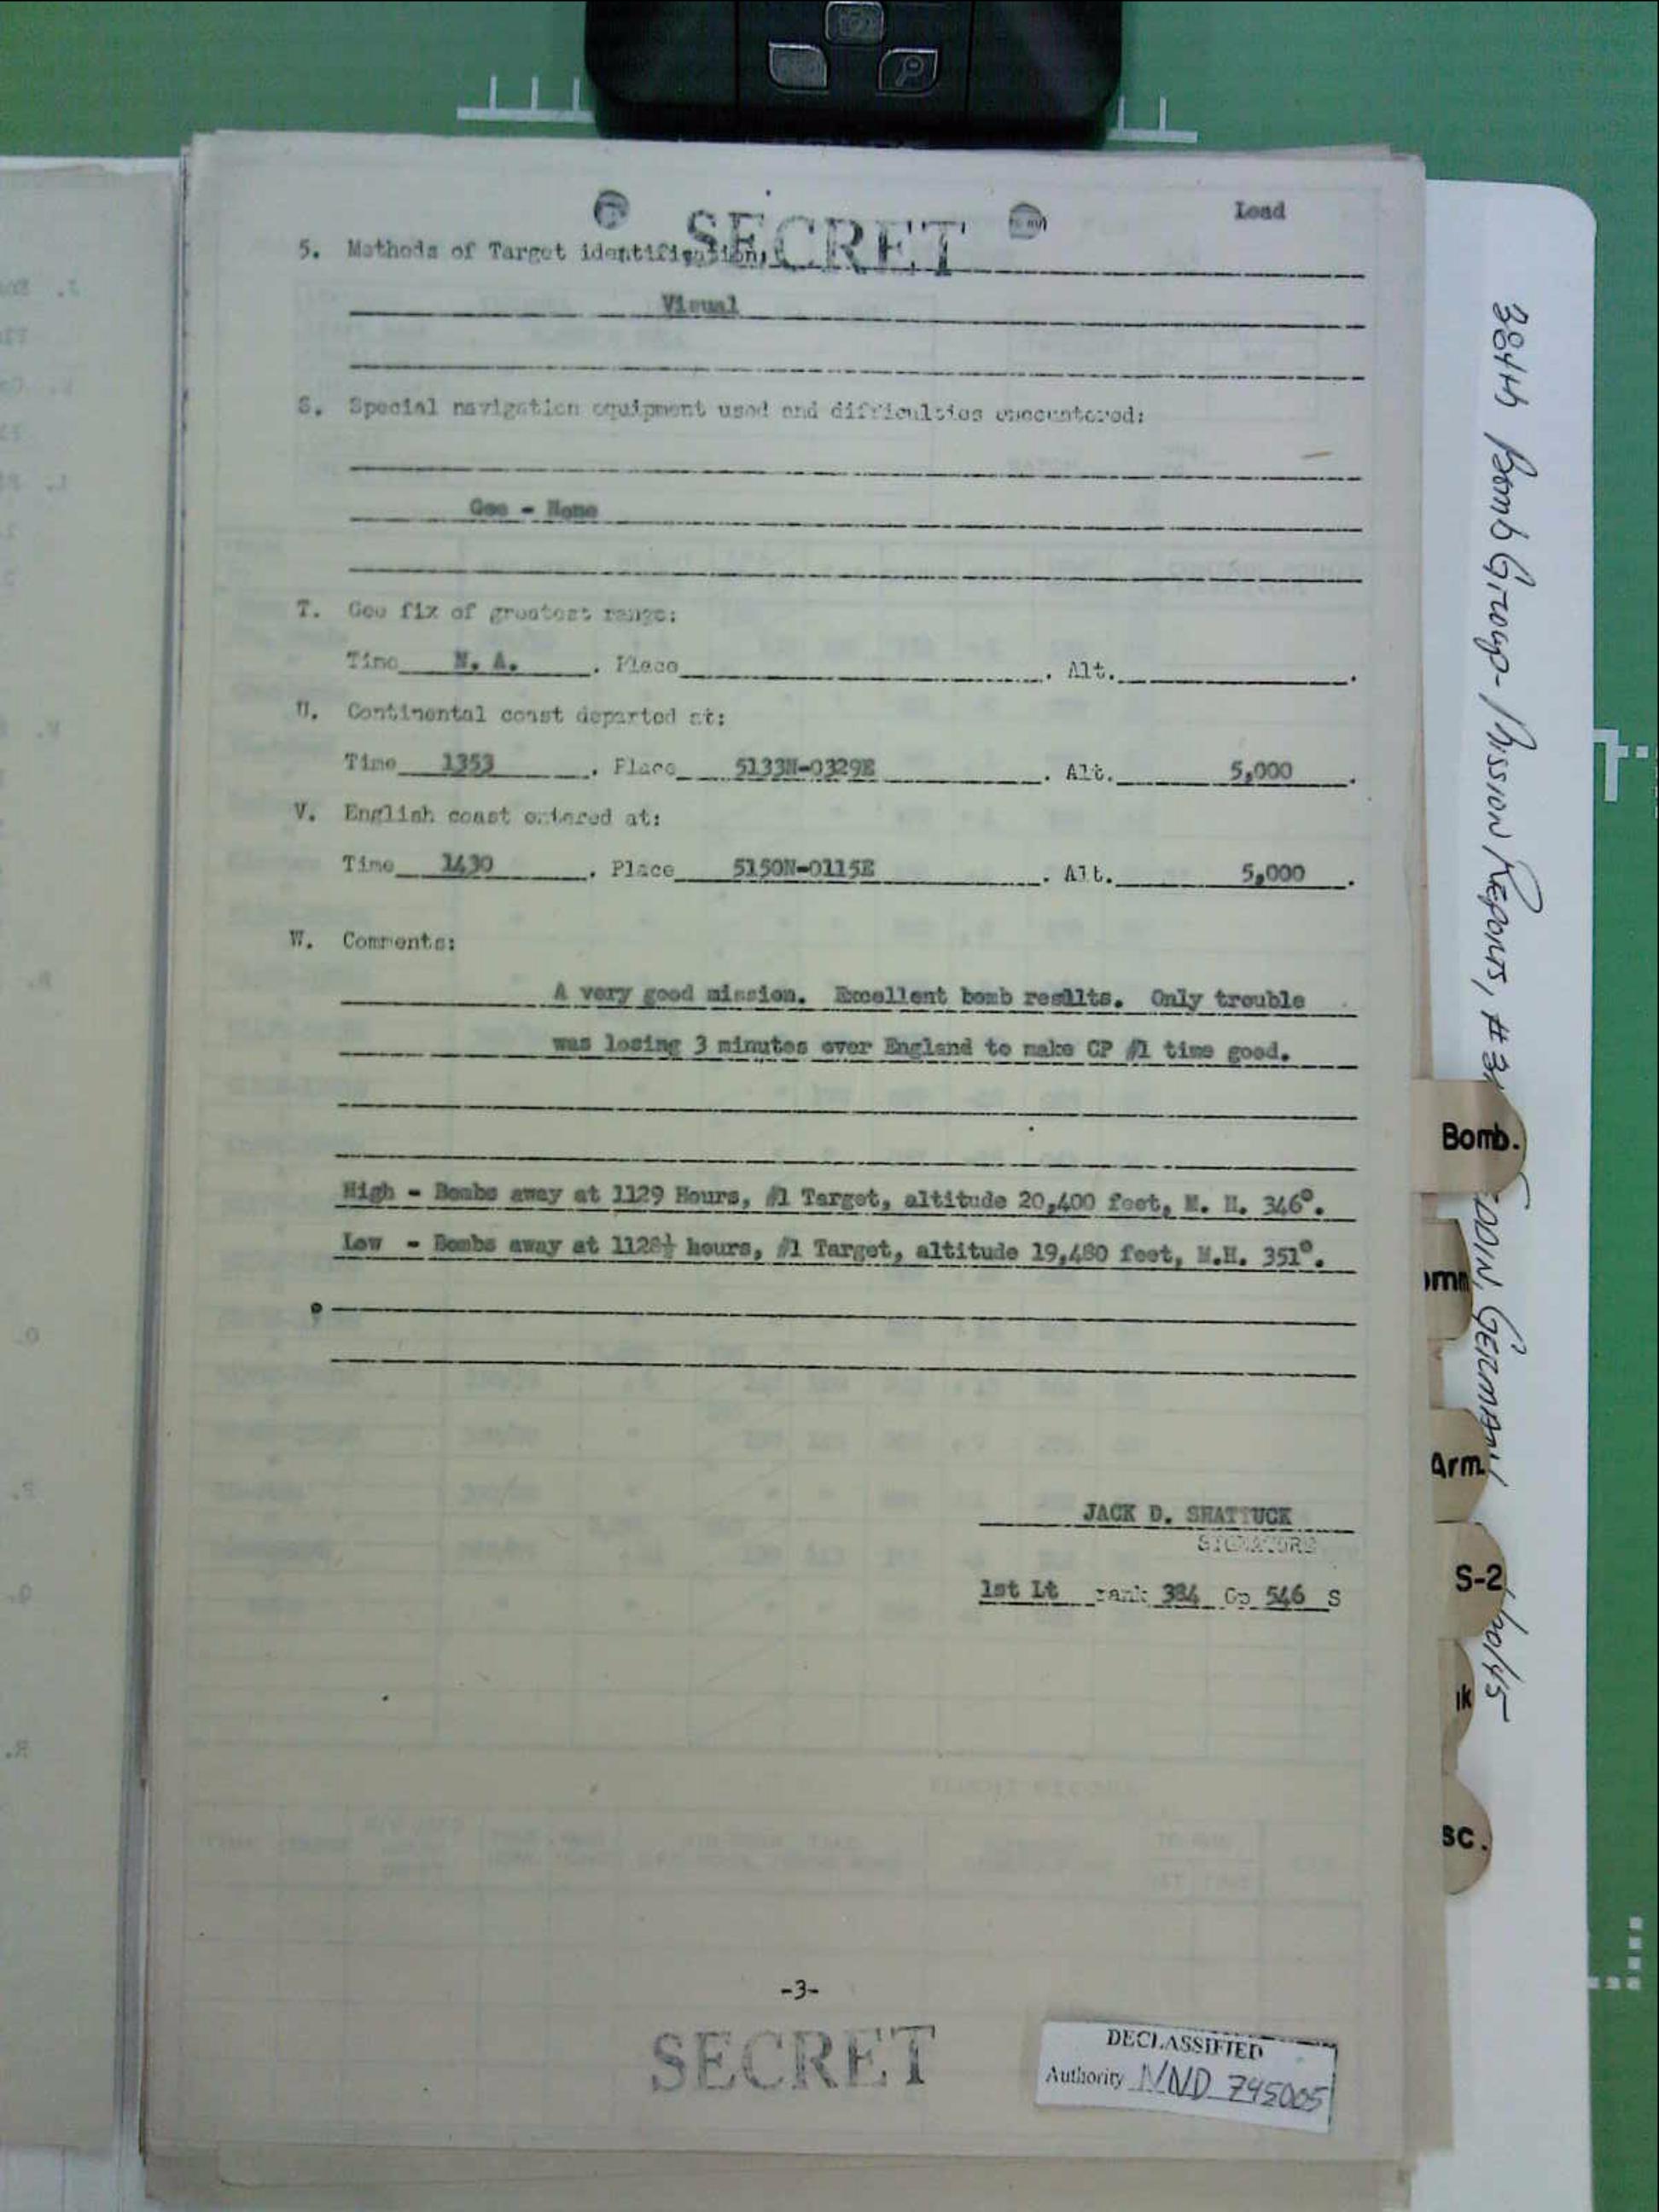 SECRET
Lead
5. Methods of Target identification,
Visual
S. Special navigation equipment used and difficulties encountered:
Gee - None
T. Gee fix of greatest range:
Time N. A. . Place . Alt. .
U. Continental coast departed at:
Time 1353 . Place 5133N-0329E . Alt. 5,000 .
V. English coast entered at:
Time 1430 . Place 5150N-0115E . Alt. 5,000 .
W. Comments:
A very good mission. Excellent bomb results. Only trouble
was losing 3 minutes over England to make CP #1 time good.
High - Bombs away at 1129 Hours, #1 Target, altitude 20,400 feet, M. H. 346°.
Low - Bombs away at 1128½ hours, #1 Target, altitude 19,480 feet, M.H. 351°.
JACK D. SHATTUCK
SIGNATURE
1st Lt rank 384 Gp 546 S
-3-
SECRET
DECLASSIFIED
Authority NND 745005
384th Bomb Group - Mission Reports, #3
GERMANY
Bomb.
Arm.
S-2